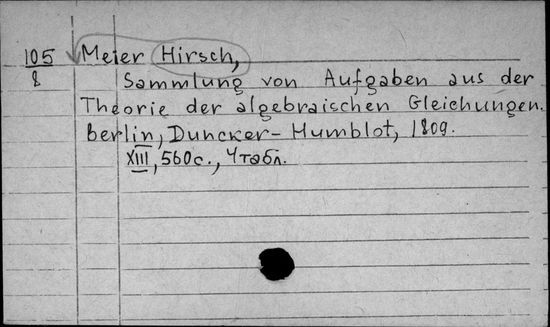 105 Meier Hirsch,
8 Sammlung von Aufgaben aus der
Theorie der algebraischen Gleichungen.
Berlin, Duncker-Humblot, 1809.
XIII, 560с., 4табл.